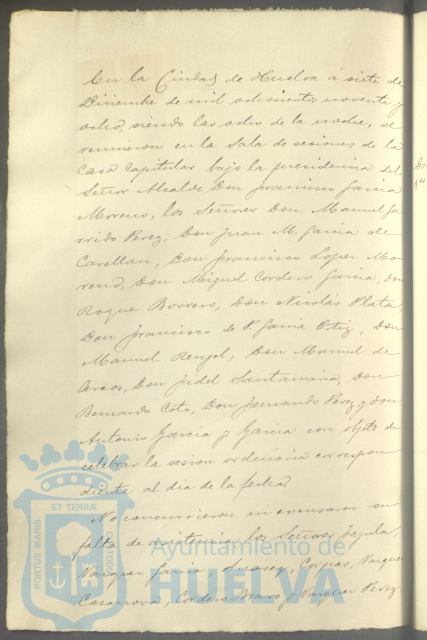 En la Ciudad de Huelva á siete de
Diciembre de mil ochocientos noventa y
ocho, siendo las ocho de la noche, se
reunieron en la Sala de sesiones de la
Casa Capitular bajo la presidencia del
Señor Alcalde Don Francisco Garcia
Moreno, los Señores Don Manuel Ga
rrido Perez, Don Juan M. Garcia de
Castellau, Don Francisco Lopez Mo
reno, Don Miguel Cordero Garcia, Don
Roque Borrero, Don Nicolás Plata,
Don Francisco de P. Garcia Ortiz, Don
Manuel Rengel, Don Manuel de
Arcos, Don Fidel Santamaria, Don
Bernardo Coto, Don Fernando Perez y Don
Antonio Garcia y Garcia con objeto de
celebrar la sesion ordinaria correspon
diente al dia de la fecha.
No concurrieron ni excusaron su
falta de asistencia los Señores
Vazquez Garcia, Suarez, Vazquez
Casanova, Cordero Bravo y Vazquez Perez
PORTUS MARIS ET TERRÆ CUSTODIA
Ayuntamiento de
HUELVA